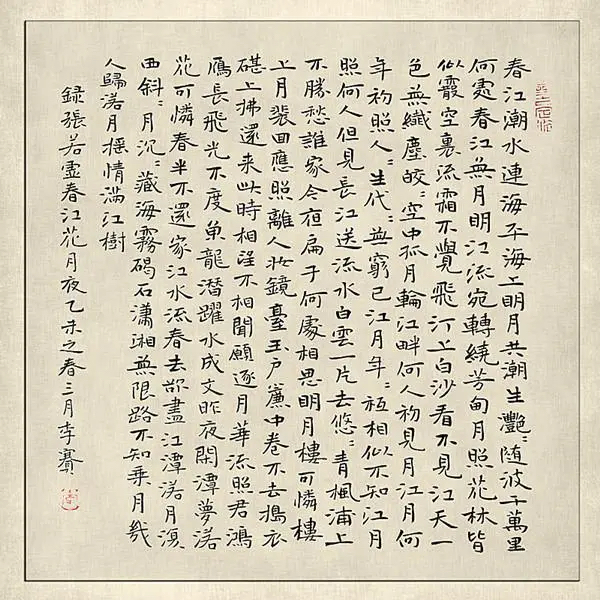 春江潮水連海平海上明月共潮生灩〻隨波千萬里
何處春江無月明江流宛轉繞芳甸月照花林皆
似霰空裏流霜不覺飛汀上白沙看不見江天一
色無纖塵皎〻空中孤月輪江畔何人初見月江月何
年初照人〻生代〻無窮已江月年〻秖相似不知江月
照何人但見長江送流水白雲一片去悠〻青楓浦上
不勝愁誰家今夜扁子何處相思明月樓可憐樓
上月裴回應照離人妝鏡臺玉戶簾中卷不去搗衣
碪上拂還來此時相望不相聞願逐月華流照君鴻
鴈長飛光不度魚龍潛躍水成文昨夜閑潭夢落
花可憐春半不還家江水流春去欲盡江潭落月復
西斜〻月沉〻藏海霧碣石瀟湘無限路不知乘月幾
人歸落月搖情滿江樹
録張若虛春江花月夜乙未之春三月李賽